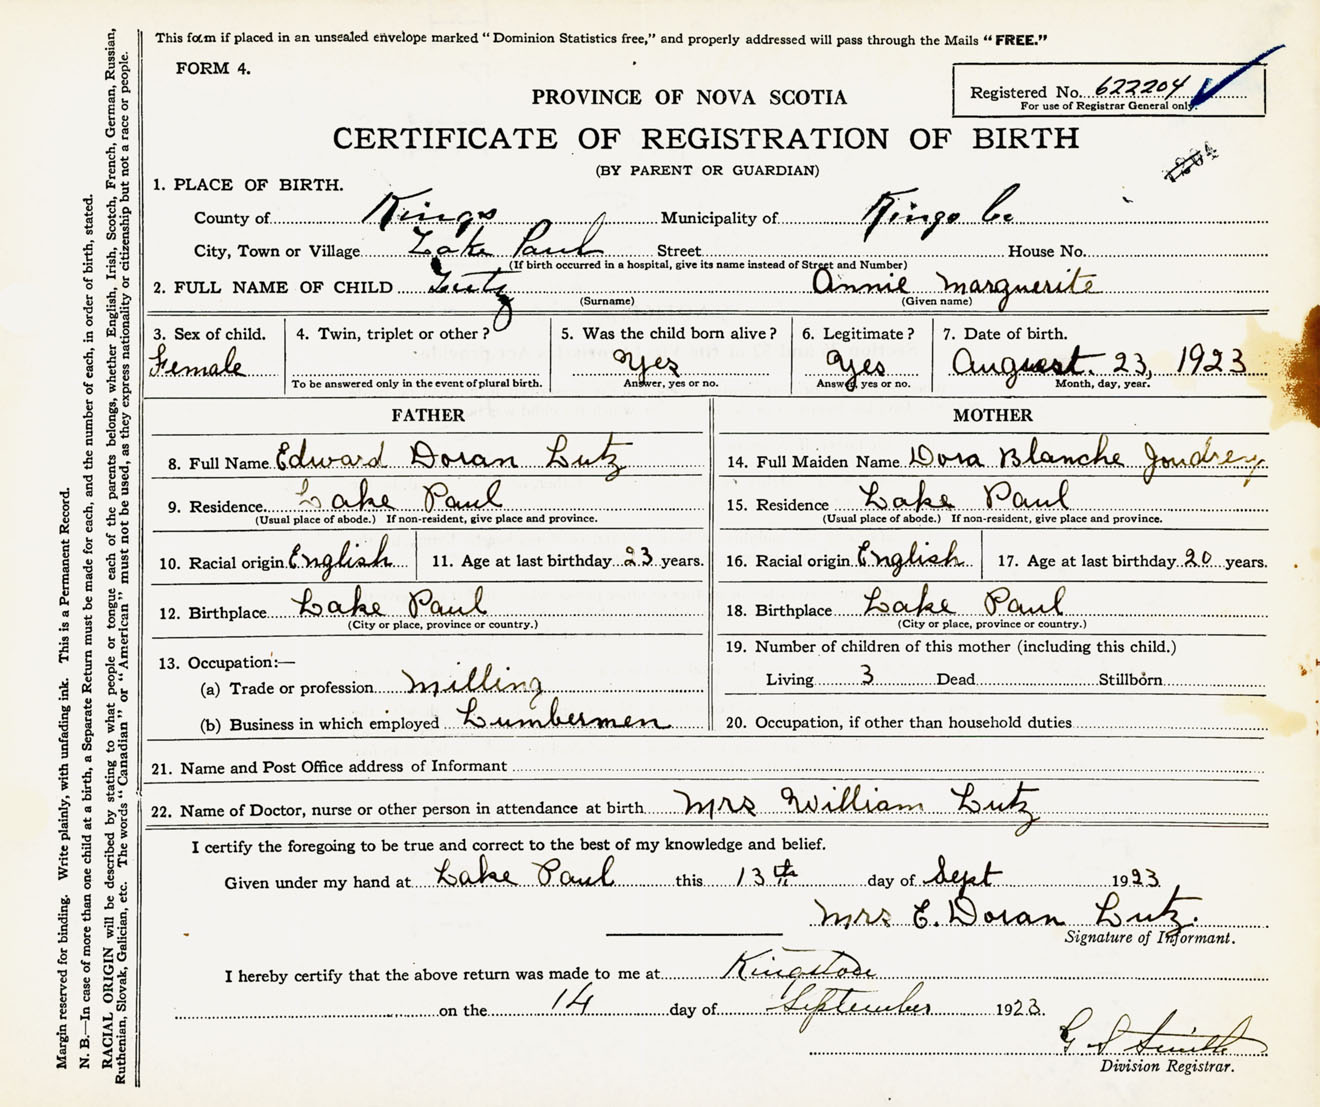 This form if placed in an unsealed envelope marked "Dominion Statistics free," and properly addressed will pass through the Mails "FREE."
FORM 4.
Registered No. 622204
For use of Registrar General only.
PROVINCE OF NOVA SCOTIA
CERTIFICATE OF REGISTRATION OF BIRTH
(BY PARENT OR GUARDIAN)
1. PLACE OF BIRTH.
County of Kings Municipality of Kings Co
City, Town or Village Lake Paul Street House No.
(If birth occurred in a hospital, give its name instead of Street and Number)
2. FULL NAME OF CHILD Lutz Annie Marguerite
(Surname) (Given name)
3. Sex of child. 4. Twin, triplet or other? 5. Was the child born alive? 6. Legitimate? 7. Date of birth.
Female Yes Yes August. 23, 1923
To be answered only in the event of plural birth. Answer, yes or no. Answer, yes or no. Month, day, year.
FATHER MOTHER
8. Full Name Edward Doran Lutz 14. Full Maiden Name Dora Blanche Joudrey
9. Residence Lake Paul 15. Residence Lake Paul
(Usual place of abode.) If non-resident, give place and province. (Usual place of abode.) If non-resident, give place and province.
10. Racial origin English 11. Age at last birthday 23 years. 16. Racial origin English 17. Age at last birthday 20 years.
12. Birthplace Lake Paul 18. Birthplace Lake Paul
(City or place, province or country.) (City or place, province or country.)
13. Occupation:— 19. Number of children of this mother (including this child.)
(a) Trade or profession Milling Living 3 Dead Stillborn
(b) Business in which employed Lumbermen 20. Occupation, if other than household duties
21. Name and Post Office address of Informant
22. Name of Doctor, nurse or other person in attendance at birth Mrs William Lutz
I certify the foregoing to be true and correct to the best of my knowledge and belief.
Given under my hand at Lake Paul this 13th day of Sept 1923
Mrs E. Doran Lutz.
Signature of Informant.
I hereby certify that the above return was made to me at Kingston
on the 14 day of September 1923.
G S Smith
Division Registrar.
Margin reserved for binding. Write plainly, with unfading ink. This is a Permanent Record.
N. B.—In case of more than one child at a birth, a Separate Return must be made for each, and the number of each, in order of birth, stated.
RACIAL ORIGIN will be described by stating to what people or tongue each of the parents belongs, whether English, Irish, Scotch, French, German, Russian,
Ruthenian, Slovak, Galician, etc. The words "Canadian" or "American" must not be used, as they express nationality or citizenship but not a race or people.